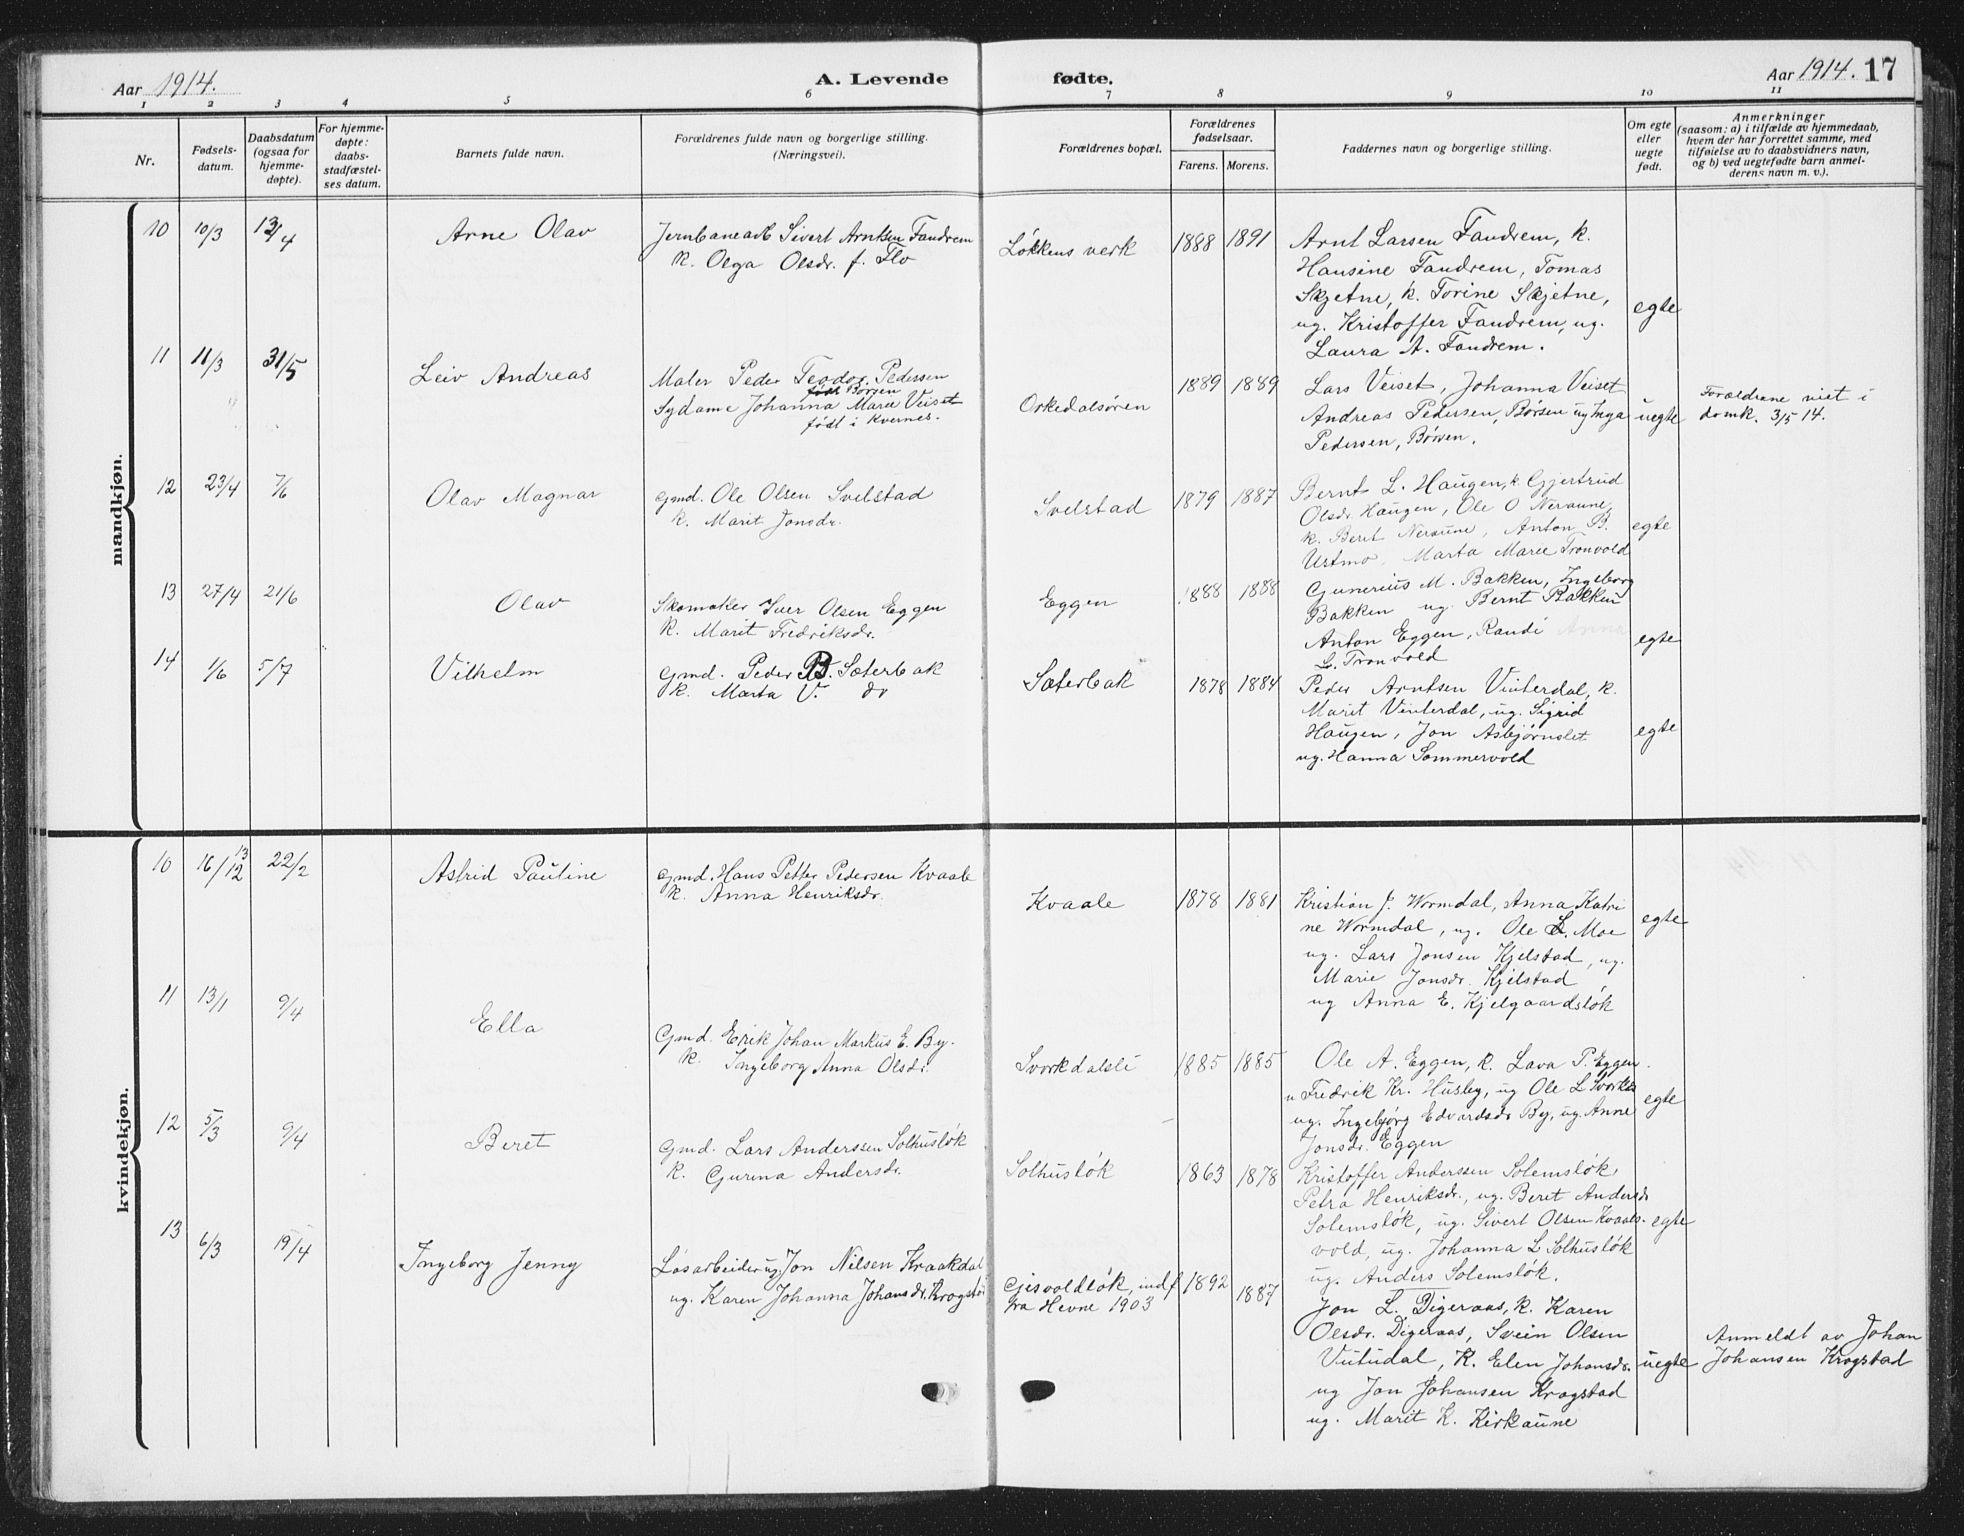 Aar 1914. A. Levende fødte. Aar 1914. 17
1 2 3 4 5 6 7 8 9 10 11
Nr.
Fødsels-
datum.
Daabsdatum
(ogsaa for
hjemme-
døpte).
For hjemme-
døpte:
daabs-
stadfæstel-
ses datum.
Barnets fulde navn.
Forældrenes fulde navn og borgerlige stilling.
(Næringsvei).
Forældrenes bopæl.
Forældrenes
fødselsaar.
Farens. Morens.
Faddernes navn og borgerlige stilling.
Om egte
eller
uegte
født.
Anmerkninger
(saasom: a) i tilfælde av hjemmedaab,
hvem der har forrettet samme, med
tilføielse av to daabsvidners navn,
og b) ved uegtefødte barn anmel-
derens navn m. v.).
mandkjøn.
10 10/3 13/4 Arne Olav
Jernbanearb Sivert Arntsen Fandrem
k. Olga Olsdr. f. Flo
Løkkens verk 1888 1891
Arnt Larsen Fandrem, k.
Hansine Fandrem, Tomas
Skjetne, k. Torine Skjetne,
ug. Kristoffer Fandrem, ug.
Laura A. Fandrem.
egte
11 11/3 31/5 Leiv Andreas
Maler Peder Teodor Pedersen
født Børsen
Sydame Johanna Marie Veiset
født i Kvernes.
Orkedalsøren 1889 1889
Lars Veiset, Johanna Veiset
Andreas Pedersen, Børsen ug Inga
Pedersen, Børsen.
uegte
Forældrene viet i
domk. 3/5 14.
12 23/4 7/6 Olav Magnar
Gmd. Ole Olsen Svelstad
k. Marit Jonsdr.
Svelstad 1879 1887
Bernt L. Haugen, k. Gjertrud
Olsdr. Haugen, Ole O Neraune,
k. Berit Neraune, Anton B.
Ustmo, Marta Marie Tronvold
egte
13 27/4 21/6 Olav
Skomaker Iver Olsen Eggen
k. Marit Fredriksdr.
Eggen 1888 1888
Gunerius M. Bakken, Ingeborg
Bakken ug. Bernt Bakken
Anton Eggen, Randi Anna
L. Tronvold
egte
14 1/6 5/7 Vilhelm
Gmd. Peder B. Sæterbak
k. Marta V. do
Sæterbak 1878 1884
Peder Arntsen Vinterdal, k.
Marit Vinterdal, ug. Sigrid
Haugen, Jon Asbjørnslet
ug. Hanna Sommervold
egte
kvindekjøn.
10 16/12 13 22/2 Astrid Pauline
Gmd. Hans Petter Pedersen Kvaale
k. Anna Henriksdr.
Kvaale 1878 1881
Kristian J. Wormdal, Anna Katri
ne Wormdal, ug. Ole L. Moe
ug. Lars Jonsen Kjelstad, ug.
Marie Jonsdr. Kjelstad
ug Anna E. Kjelgaardsløk
egte
11 13/1 9/4 Ella
Gmd. Erik Johan Markus E. By.
k. Ingeborg Anna Olsdr.
Svorkdalsli 1885 1885
Ole A. Eggen, k. Lava P. Eggen
u Fredrik Kr. Husby, ug Ole L Svorkd
ug. Ingebjørg Edvardsdr By, ug. Anne
Jonsdr. Eggen
egte
12 5/3 9/4 Beret
Gmd. Lars Anderssen Solhusløk
k. Gurina Andersdr.
Solhusløk 1863 1878
Kristoffer Anderssen Solemsløk
Petra Henriksdr., ug. Beret Andersdr
Solemsløk, ug. Sivert Olsen Kvaals-
vold, ug. Johanna L Solhusløk
ug. Anders Solemsløk.
egte
13 6/3 19/4 Ingeborg Jenny
Løsarbeider ug. Jon Nilsen Kraakdal
ug. Karen Johanna Johansdr. Krogstad
Gjisvoldløk, indf
fra Hevne 1903
1892 1887
Jon L. Digeraas, k. Karen
Olsdr. Digeraas, Svein Olsen
Vutudal, K. Elen Johansdr.
ug Jon Johansen Krogstad
ug. Marit K. Kirkaune
uegte
Anmeldt av Johan
Johansen Krogstad